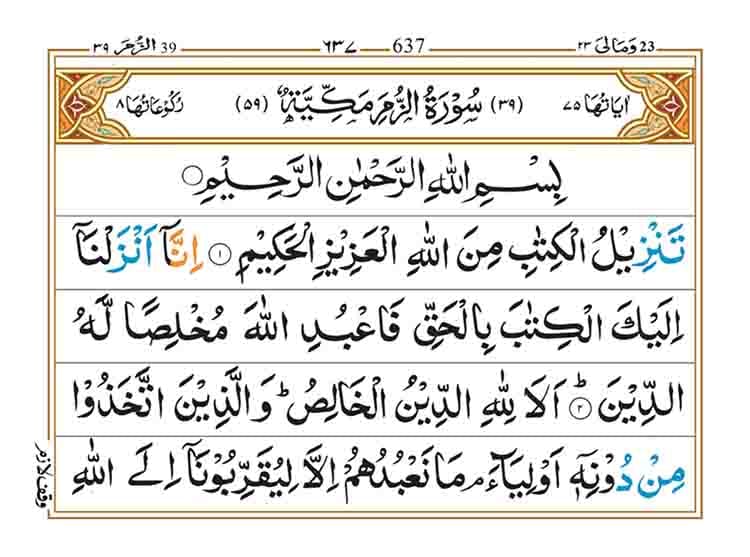 39 الزُّمَر ٣٩ ٦٣٧ 637 ٢٣ وَمَالِىَ 23
اٰيَاتُهَا ٧٥ (٣٩) سُوْرَةُ الزُّمَرِ مَكِّيَّةٌ (٥٩) رُكُوْعَاتُهَا ٨
بِسْمِ اللّٰهِ الرَّحْمٰنِ الرَّحِيْمِ
تَنْزِيْلُ الْكِتٰبِ مِنَ اللّٰهِ الْعَزِيْزِ الْحَكِيْمِ ١ اِنَّاۤ اَنْزَلْنَاۤ
اِلَيْكَ الْكِتٰبَ بِالْحَقِّ فَاعْبُدِ اللّٰهَ مُخْلِصًا لَّهُ
الدِّيْنَ ٢ؕ اَلَا لِلّٰهِ الدِّيْنُ الْخَالِصُؕ وَالَّذِيْنَ اتَّخَذُوْا
مِنْ دُوْنِهٖۤ اَوْلِيَآءَۘ مَا نَعْبُدُهُمْ اِلَّا لِيُقَرِّبُوْنَاۤ اِلَى اللّٰهِ
وقف لازم